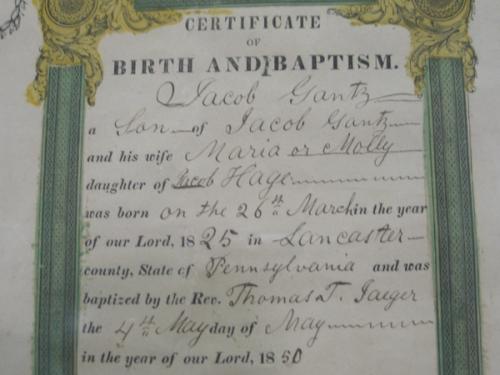 CERTIFICATE
OF
BIRTH AND BAPTISM.
Jacob Gantz
a Son of Jacob Gantz
and his wife Maria or Molly
daughter of Jacob Hage
was born on the 26th March in the year
of our Lord, 1825 in Lancaster
county, State of Pennsylvania and was
baptized by the Rev. Thomas T. Iaeger
the 4th May day of May
in the year of our Lord, 1850